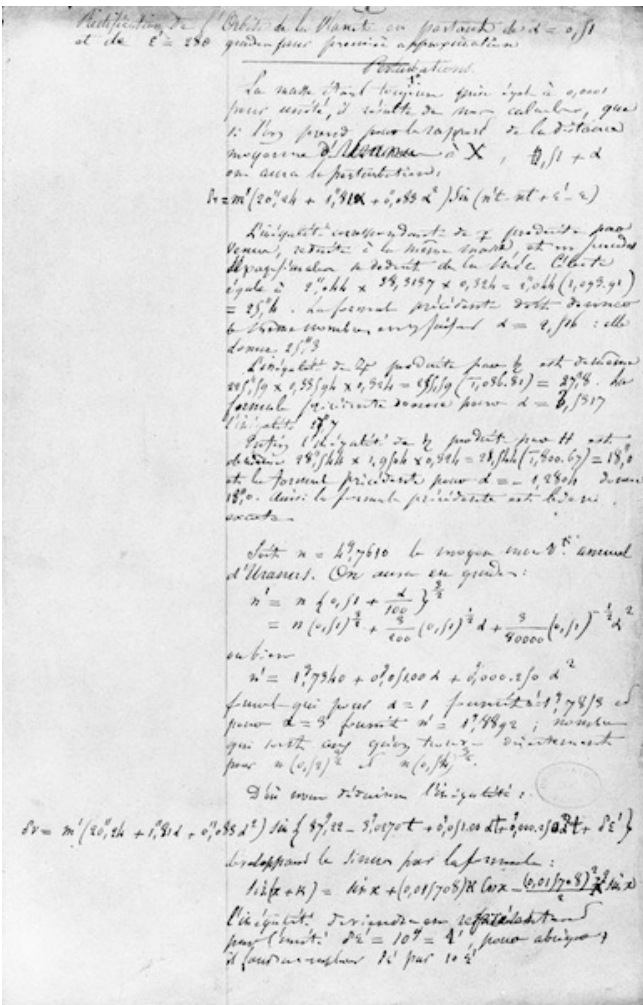 Rectification de l'Orbite de la Planète en partant de α = 0,51
et de ε' = 280 grades pour première approximation
Perturbations.
La masse étant toujours prise égale à 0,0001
pour unité, il résulte de mon calcul, que
si l'on prend pour le rapport de la distance
moyenne d'Uranus à X, 0,51 + α
on aura la perturbation,
δv = m'(20",24 + 1",81α + 0",083 α²) Sin (n't - nt + ε' - ε)
L'inégalité correspondante de produite par
Vénus, réduite à la même masse et en secondes
se déduit de la
égale à 2",044 × × 0,324 = 2,044 (1,093.91)
= 25",4. La formule précédente doit donner
le même nombre en y faisant α = 2, : elle
donne 25",3
L'inégalité de ♃ produite par ♄ est de même
× 0,324 = (1,086.82) = 27",8. La
formule précédente donne pour α =
l'inégalité
Enfin l'inégalité de ♄ produite par H est
28",544 × 1,9504 × 0,324 = 28,544 (1,800.67) = 18",0
et la formule précédente pour α = - 1,2804 donne
18",0. Ainsi la formule précédente est bien
exacte
Soit n = 4g,7610 le moyen mouvt. annuel
d'Uranus. On aura en grades :
n' = n {0,51 + α/100}^3/2
= n (0,51)^3/2 + 3/200 (0,51)^1/2 α + 3/80000 (0,51)^-1/2 α²
ou bien
n' = 1g,7340 + 0g,05100 α + 0g,000.250 α²
formule qui pour α = 1 fournit n' = 1g,7858 et
pour α = 3 fournit n' = 1g,8892 ; nombres
qui sont ceux qu'on trouve directement
par n (0,52)^3/2 et n (0,54)^3/2.
D'où nous déduisons l'inégalité :
δv = m'(20",24 + 1",81α + 0",083 α²) sin {87g,22 - 3g,0270t + 0g,051.00 αt + 0g,000.250 α²t + δε'}
Développant le sinus par la formule :
sin(x + K) = sin x + (0,015708) K Cos x - (0,015708)²/2 K² sin x
l'inégalité deviendra en représentant
par l'unité δε' = 10g = 1', pour abréger
il faudra remplacer δε' par 10 ε'